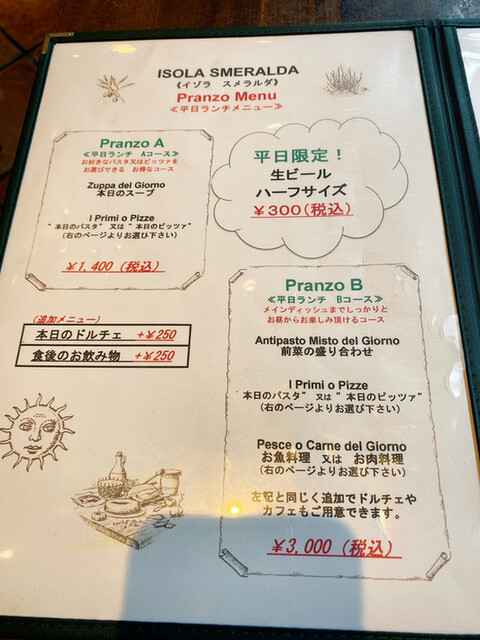 ISOLA SMERALDA
《イゾラ　スメラルダ》
Pranzo Menu
≪平日ランチメニュー≫
Pranzo A
≪平日ランチ　Aコース≫
お好きなパスタ又はピッツァを
お選びできる　お得なコース
Zuppa del Giorno
本日のスープ
I Primi o Pizze
"本日のパスタ"　又は　"本日のピッツァ"
(右のページよりお選び下さい)
￥1,400 (税込)
平日限定！
生ビール
ハーフサイズ
￥300(税込)
(追加メニュー)
本日のドルチェ　+￥250
食後のお飲み物　+￥250
Pranzo B
≪平日ランチ　Bコース≫
メインディッシュまでしっかりと
お昼からお楽しみ頂けるコース
Antipasto Misto del Giorno
前菜の盛り合わせ
I Primi o Pizze
"本日のパスタ"　又は　"本日のピッツァ"
(右のページよりお選び下さい)
Pesce o Carne del Giorno
お魚料理　又は　お肉料理
(右のページよりお選び下さい)
左記と同じく追加でドルチェや
カフェもご用意できます。
￥3,000 (税込)